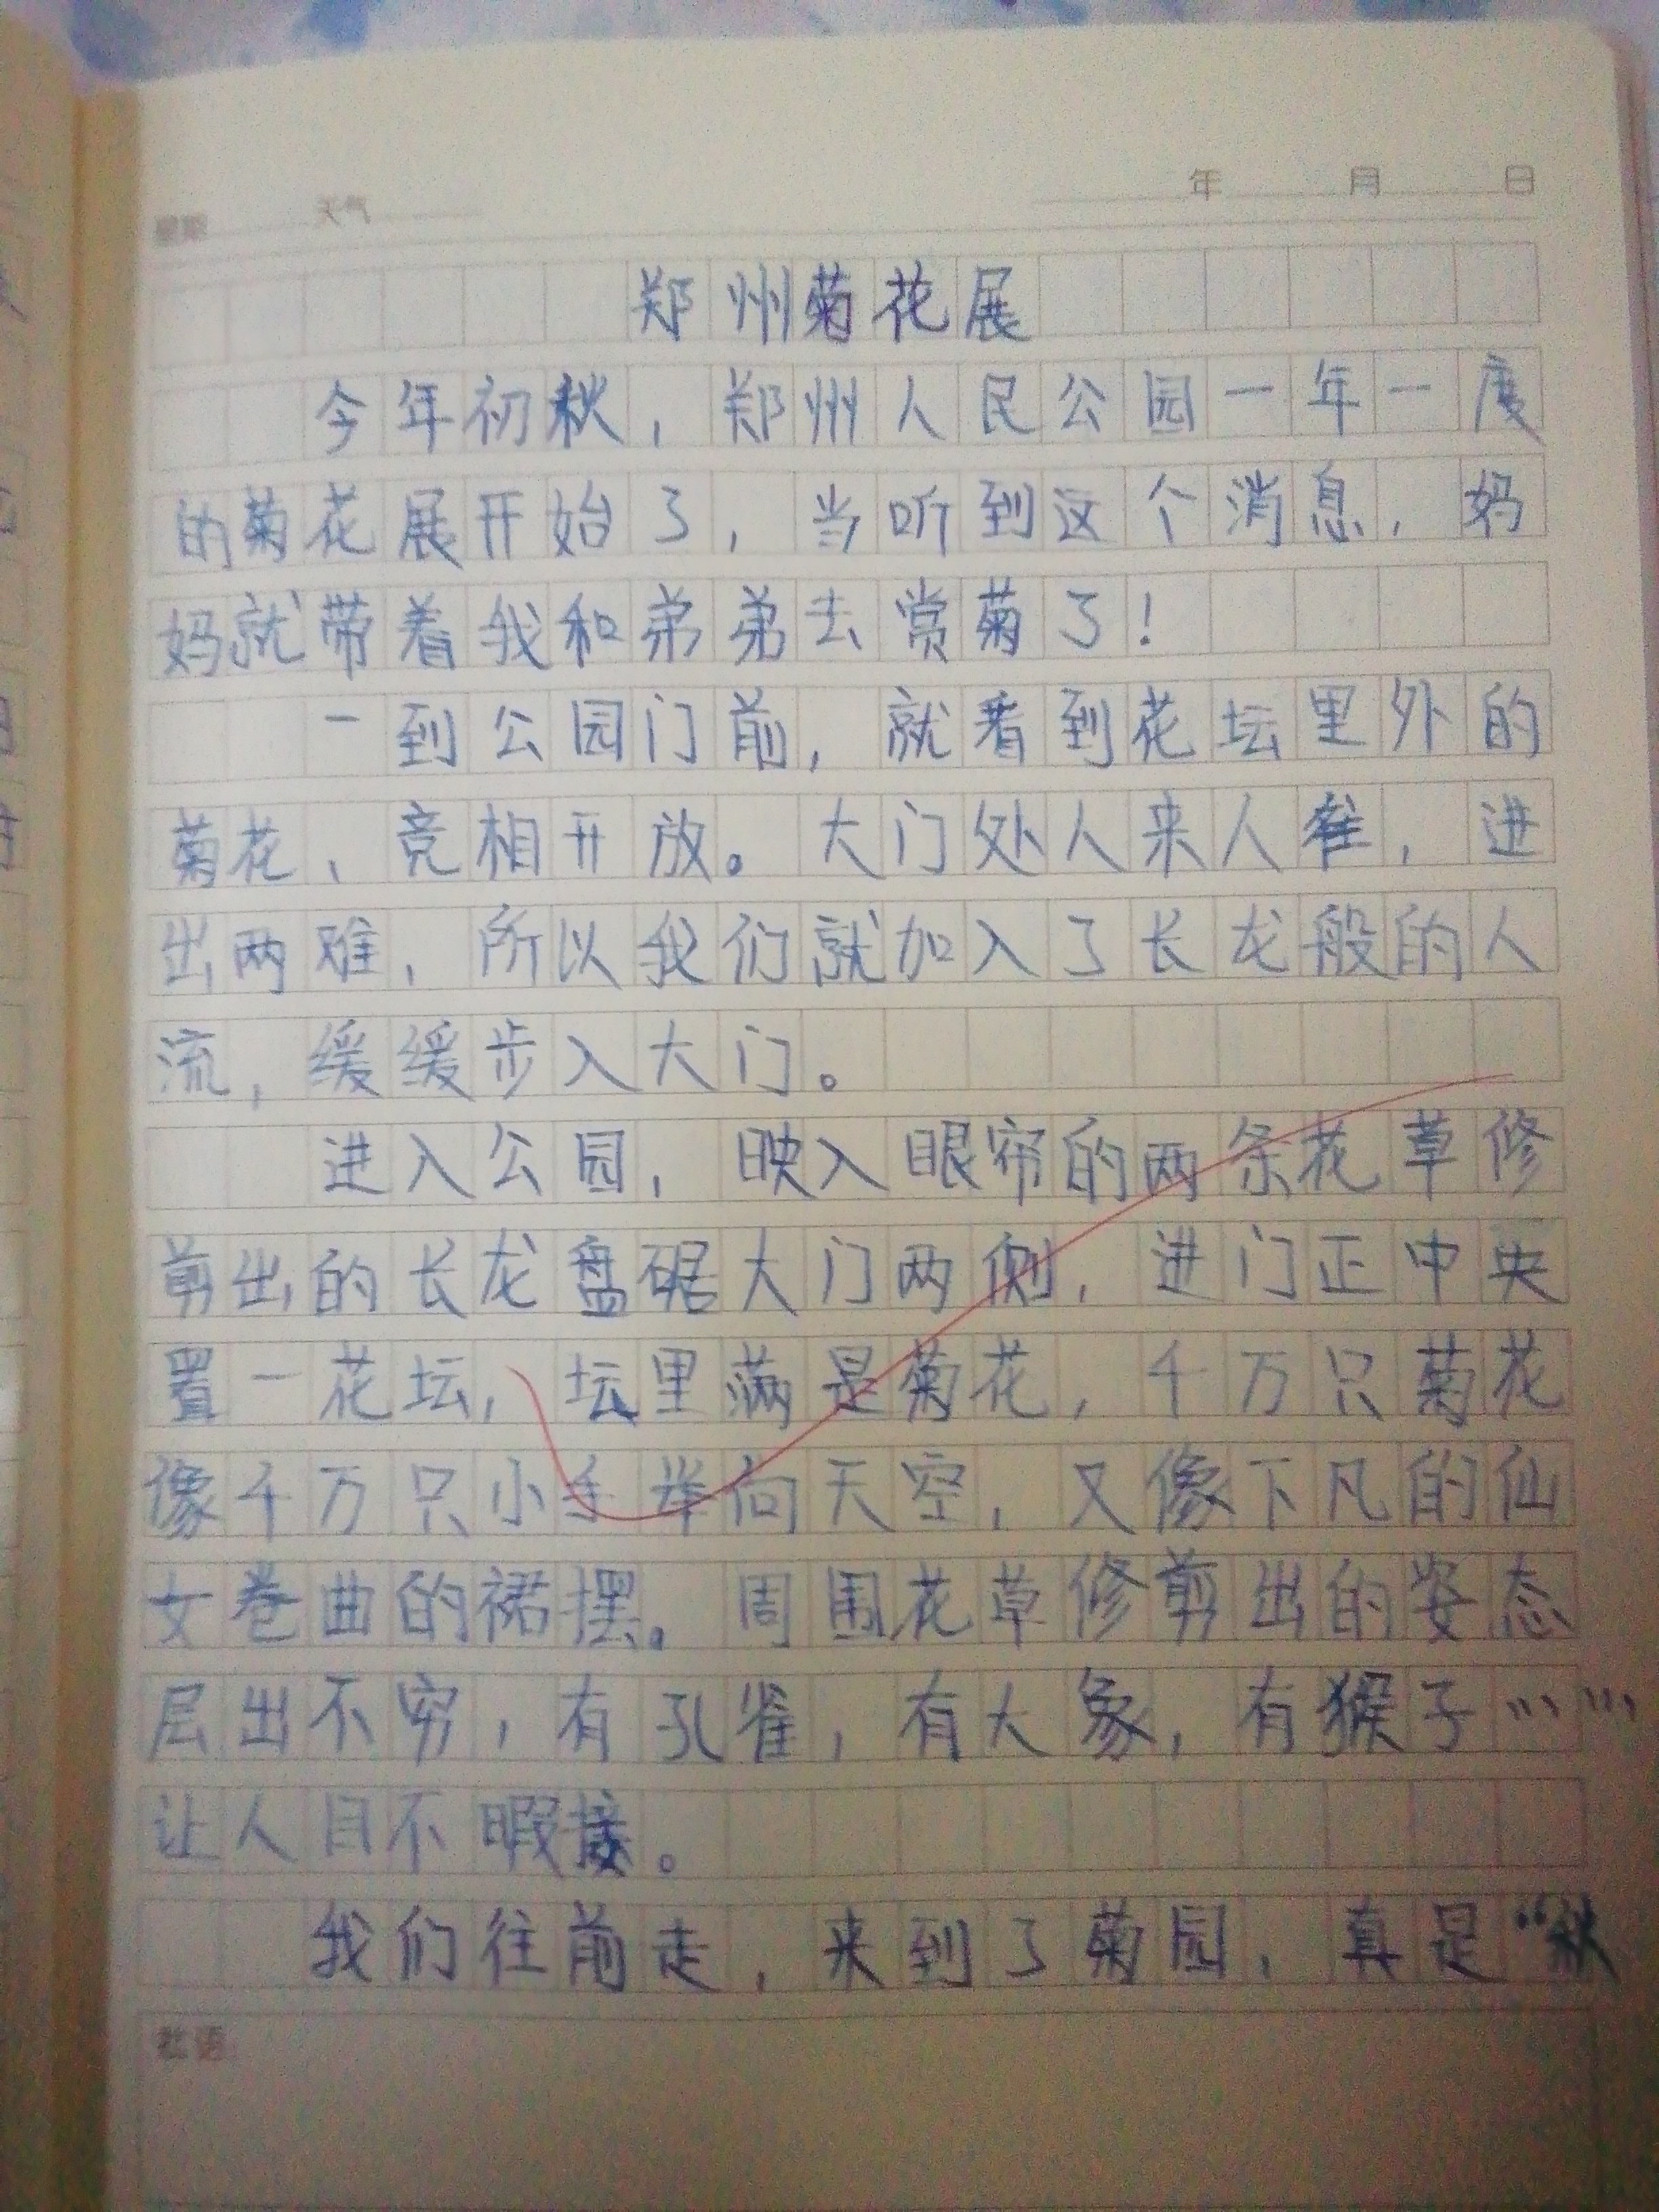 年 月 日
星期 天气
郑州菊花展
今年初秋，郑州人民公园一年一度
的菊花展开始了，当听到这个消息，妈
妈就带着我和弟弟去赏菊了！
一到公园门前，就看到花坛里外的
菊花、竞相开放。大门处人来人往，进
出两难，所以我们就加入了长龙般的人
流，缓缓步入大门。
进入公园，映入眼帘的两条花草修
剪出的长龙盘踞大门两侧，进门正中央
置一花坛，坛里满是菊花，千万只菊花
像千万只小手举向天空，又像下凡的仙
女卷曲的裙摆。周围花草修剪出的姿态
层出不穷，有孔雀，有大象，有猴子……
让人目不暇接。
我们往前走，来到了菊园，真是“秋
批语